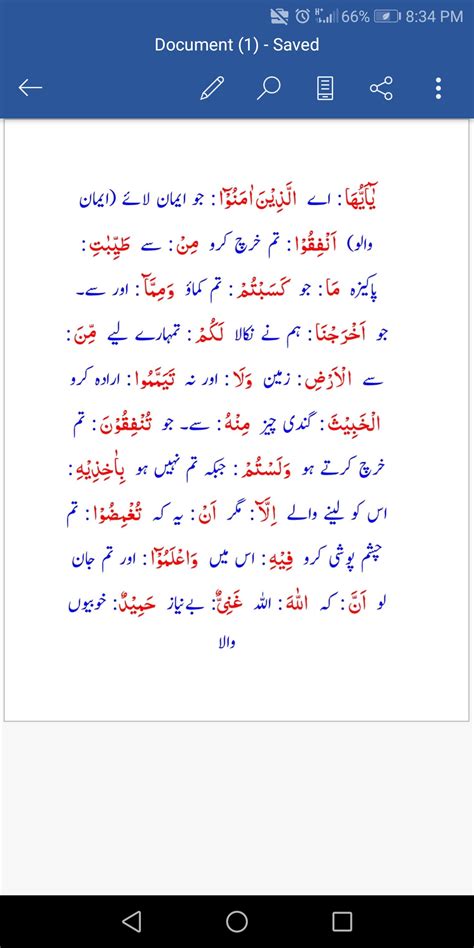 66% 8:34 PM
Document (1) - Saved
يٰۤاَيُّهَا: اے الَّذِيْنَ اٰمَنُوْۤا: جو ایمان لائے (ایمان
والو) اَنْفِقُوْا: تم خرچ کرو مِنْ: سے طَيِّبٰتِ:
پاکیزہ مَا: جو كَسَبْتُمْ: تم کماؤ وَمِمَّاۤ: اور سے۔
جو اَخْرَجْنَا: ہم نے نکالا لَكُمْ: تمہارے لیے مِّنَ:
سے الْاَرْضِ: زمین وَلَا: اور نہ تَيَمَّمُوا: ارادہ کرو
الْخَبِيْثَ: گندی چیز مِنْهُ: سے۔ جو تُنْفِقُوْنَ: تم
خرچ کرتے ہو وَلَسْتُمْ: جبکہ تم نہیں ہو بِاٰخِذِيْهِ:
اس کو لینے والے اِلَّاۤ: مگر اَنْ: یہ کہ تُغْمِضُوْا: تم
چشم پوشی کرو فِيْهِ: اس میں وَاعْلَمُوْۤا: اور تم جان
لو اَنَّ: کہ اللّٰهَ: اللہ غَنِيٌّ: بےنیاز حَمِيْدٌ: خوبیوں
والا